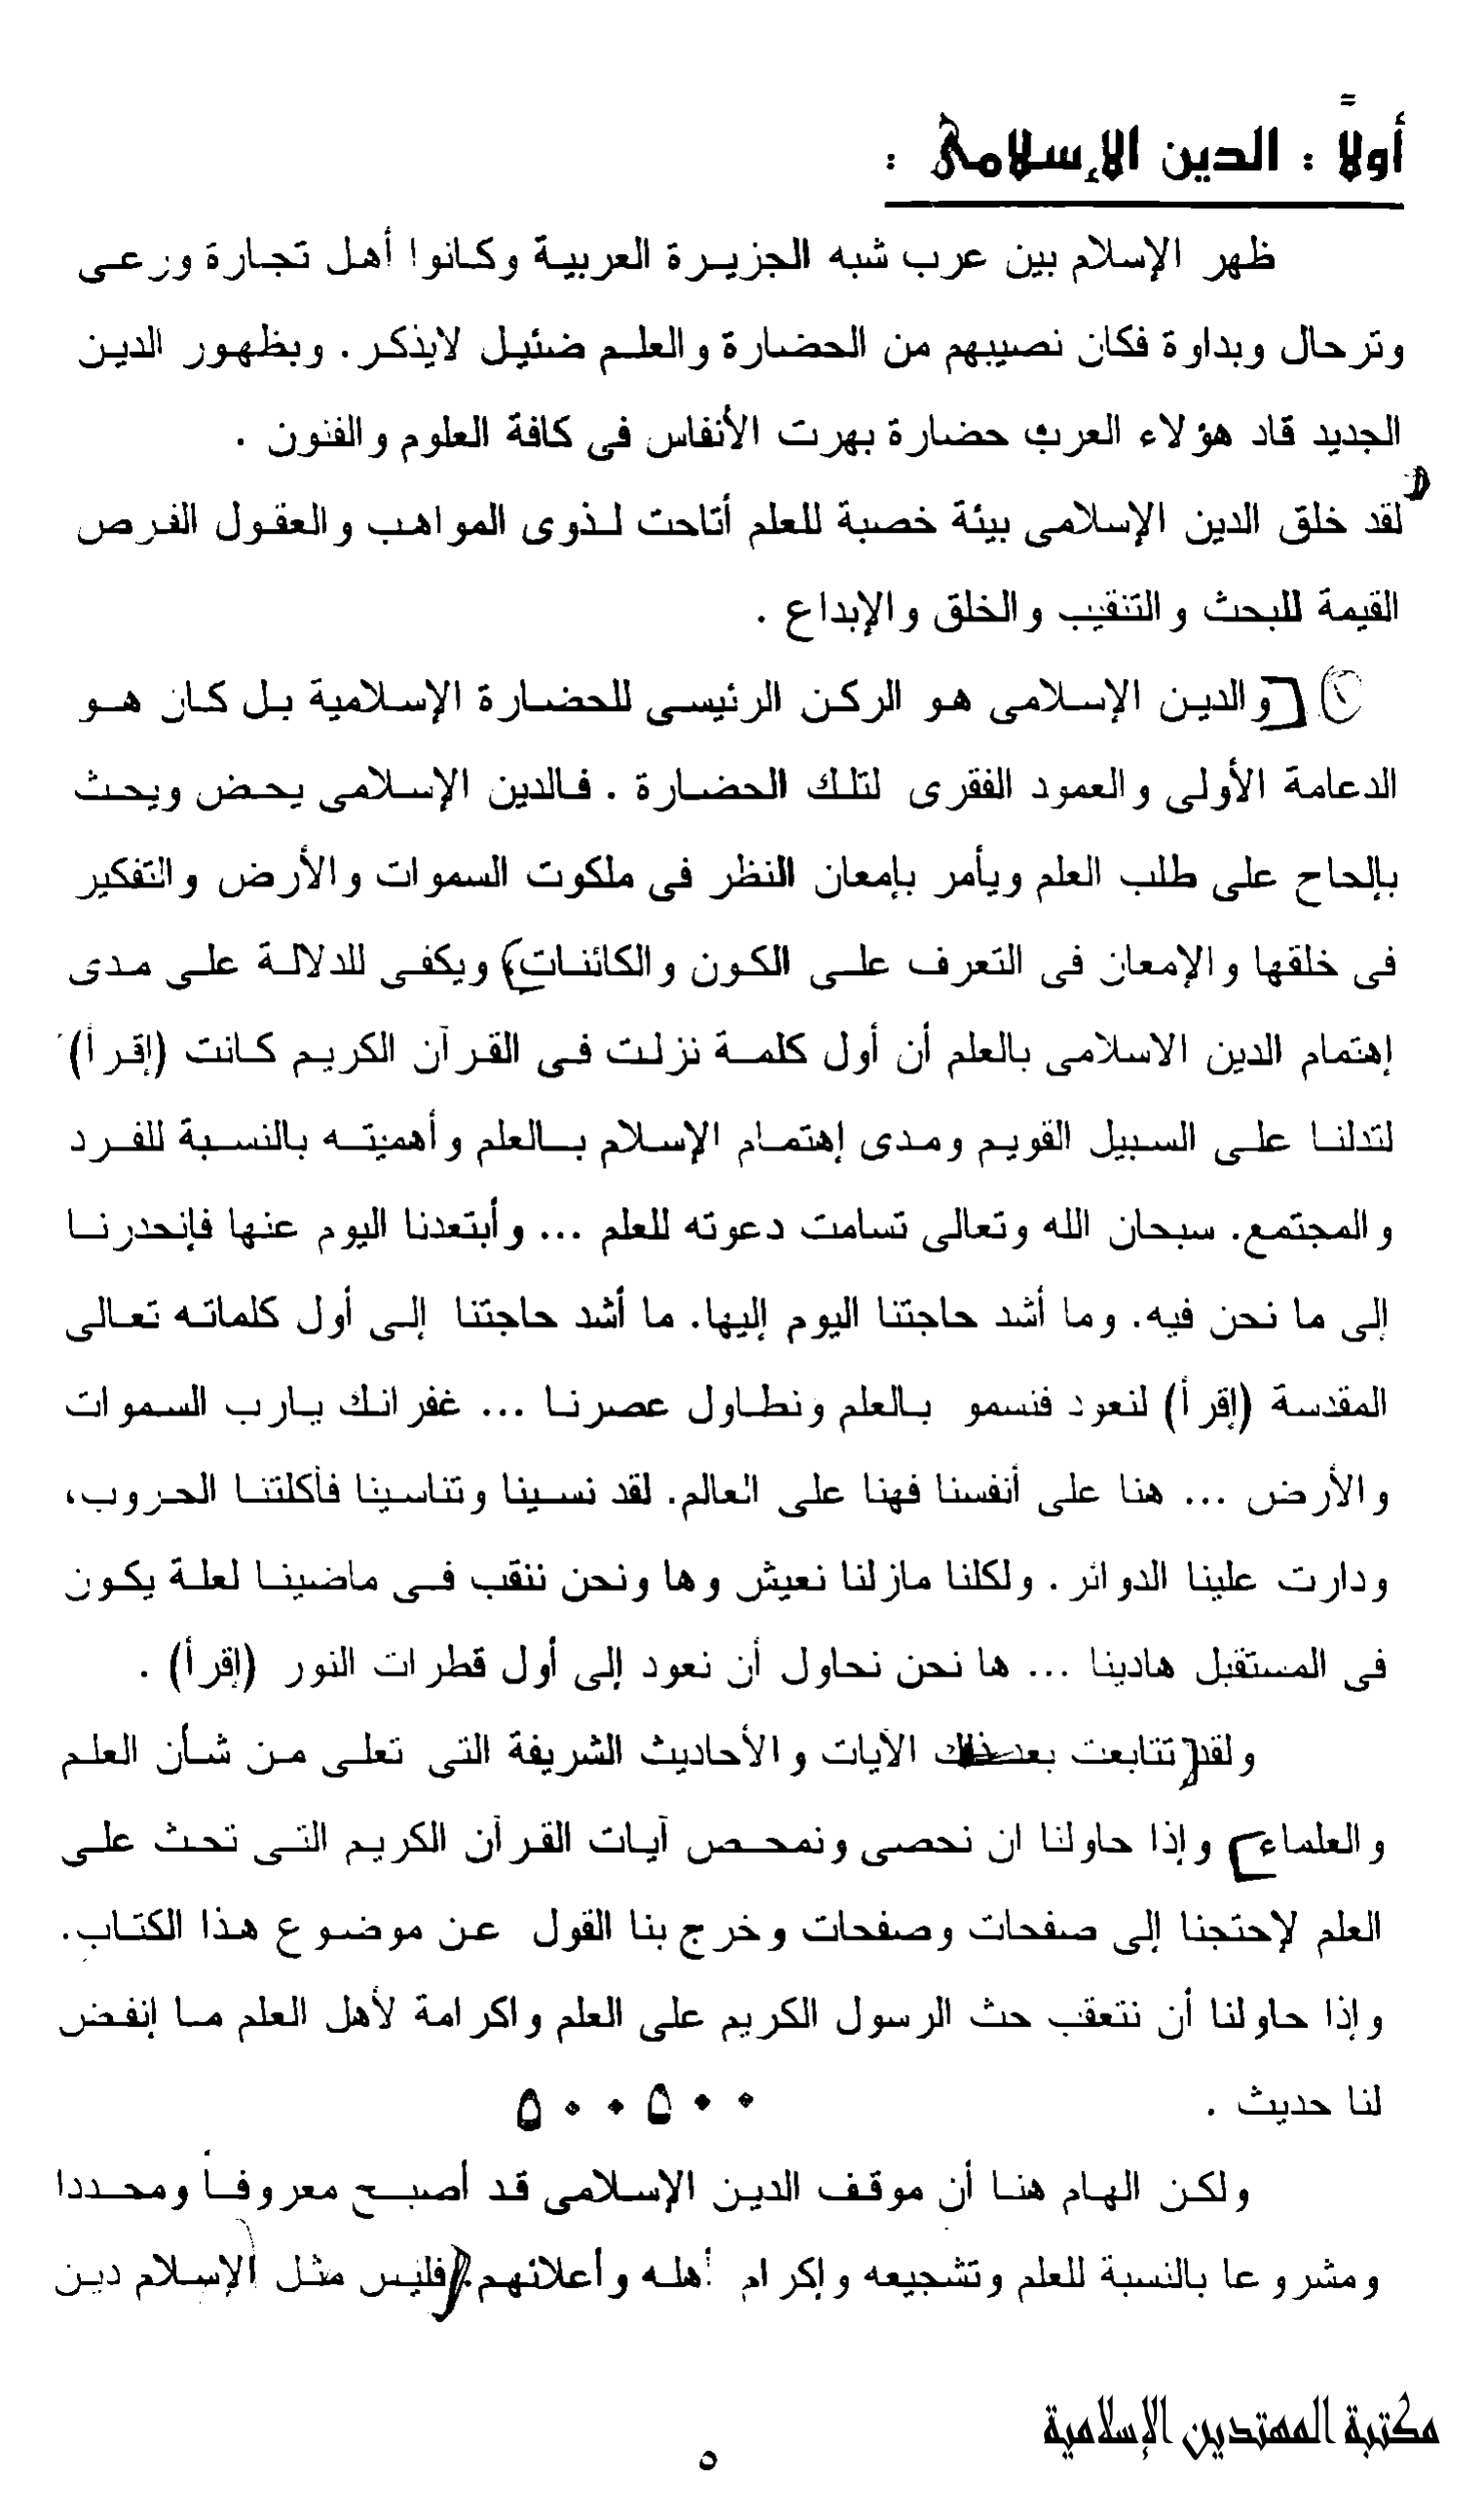 أولاً : الدين الإسلامى :
ظهر الإسلام بين عرب شبه الجزيرة العربية وكانوا أهل تجارة ورعى
وترحال وبداوة فكان نصيبهم من الحضارة والعلم ضئيل لايذكر . وبظهور الدين
الجديد قاد هؤلاء العرب حضارة بهرت الأنفاس فى كافة العلوم والفنون .
لقد خلق الدين الإسلامى بيئة خصبة للعلم أتاحت لذوى المواهب والعقول الفرص
القيمة للبحث والتنقيب والخلق والإبداع .
[والدين الإسلامى هو الركن الرئيسى للحضارة الإسلامية بل كان هو
الدعامة الأولى والعمود الفقرى لتلك الحضارة . فالدين الإسلامى يحض ويحث
بإلحاح على طلب العلم ويأمر بإمعان النظر فى ملكوت السموات والأرض والتفكير
فى خلقها والإمعان فى التعرف على الكون والكائنات] ويكفى للدلالة على مدى
إهتمام الدين الاسلامى بالعلم أن أول كلمة نزلت فى القرآن الكريم كانت (إقرأ)
لتدلنا على السبيل القويم ومدى إهتمام الإسلام بالعلم وأهميته بالنسبة للفرد
والمجتمع. سبحان الله وتعالى تسامت دعوته للعلم ... وأبتعدنا اليوم عنها فإنحدرنا
إلى ما نحن فيه. وما أشد حاجتنا اليوم إليها. ما أشد حاجتنا إلى أول كلماته تعالى
المقدسة (إقرأ) لنعود فنسمو بالعلم ونطاول عصرنا ... غفرانك يارب السموات
والأرض ... هنا على أنفسنا فهنا على العالم. لقد نسينا وتناسينا فأكلتنا الحروب،
ودارت علينا الدوائر . ولكلنا مازلنا نعيش وها ونحن ننقب فى ماضينا لعلة يكون
فى المستقبل هادينا ... ها نحن نحاول أن نعود إلى أول قطرات النور (إقرأ) .
ولقد [تتابعت بعد ذلك الآيات والأحاديث الشريفة التى تعلى من شأن العلم
والعلماء] وإذا حاولنا ان نحصى ونمحص آيات القرآن الكريم التى تحث على
العلم لإحتجنا إلى صفحات وصفحات وخرج بنا القول عن موضوع هذا الكتاب.
وإذا حاولنا أن نتعقب حث الرسول الكريم على العلم واكرامة لأهل العلم ما إنفض
لنا حديث . ٥٠٠٥٠٠
ولكن الهام هنا أن موقف الدين الإسلامى قد أصبح معروفاً ومحددا
ومشروعا بالنسبة للعلم وتشجيعه وإكرام أهله وأعلائهم. فليس مثل الإسلام دين
مكتبة المهتدين الإسلامية
٥